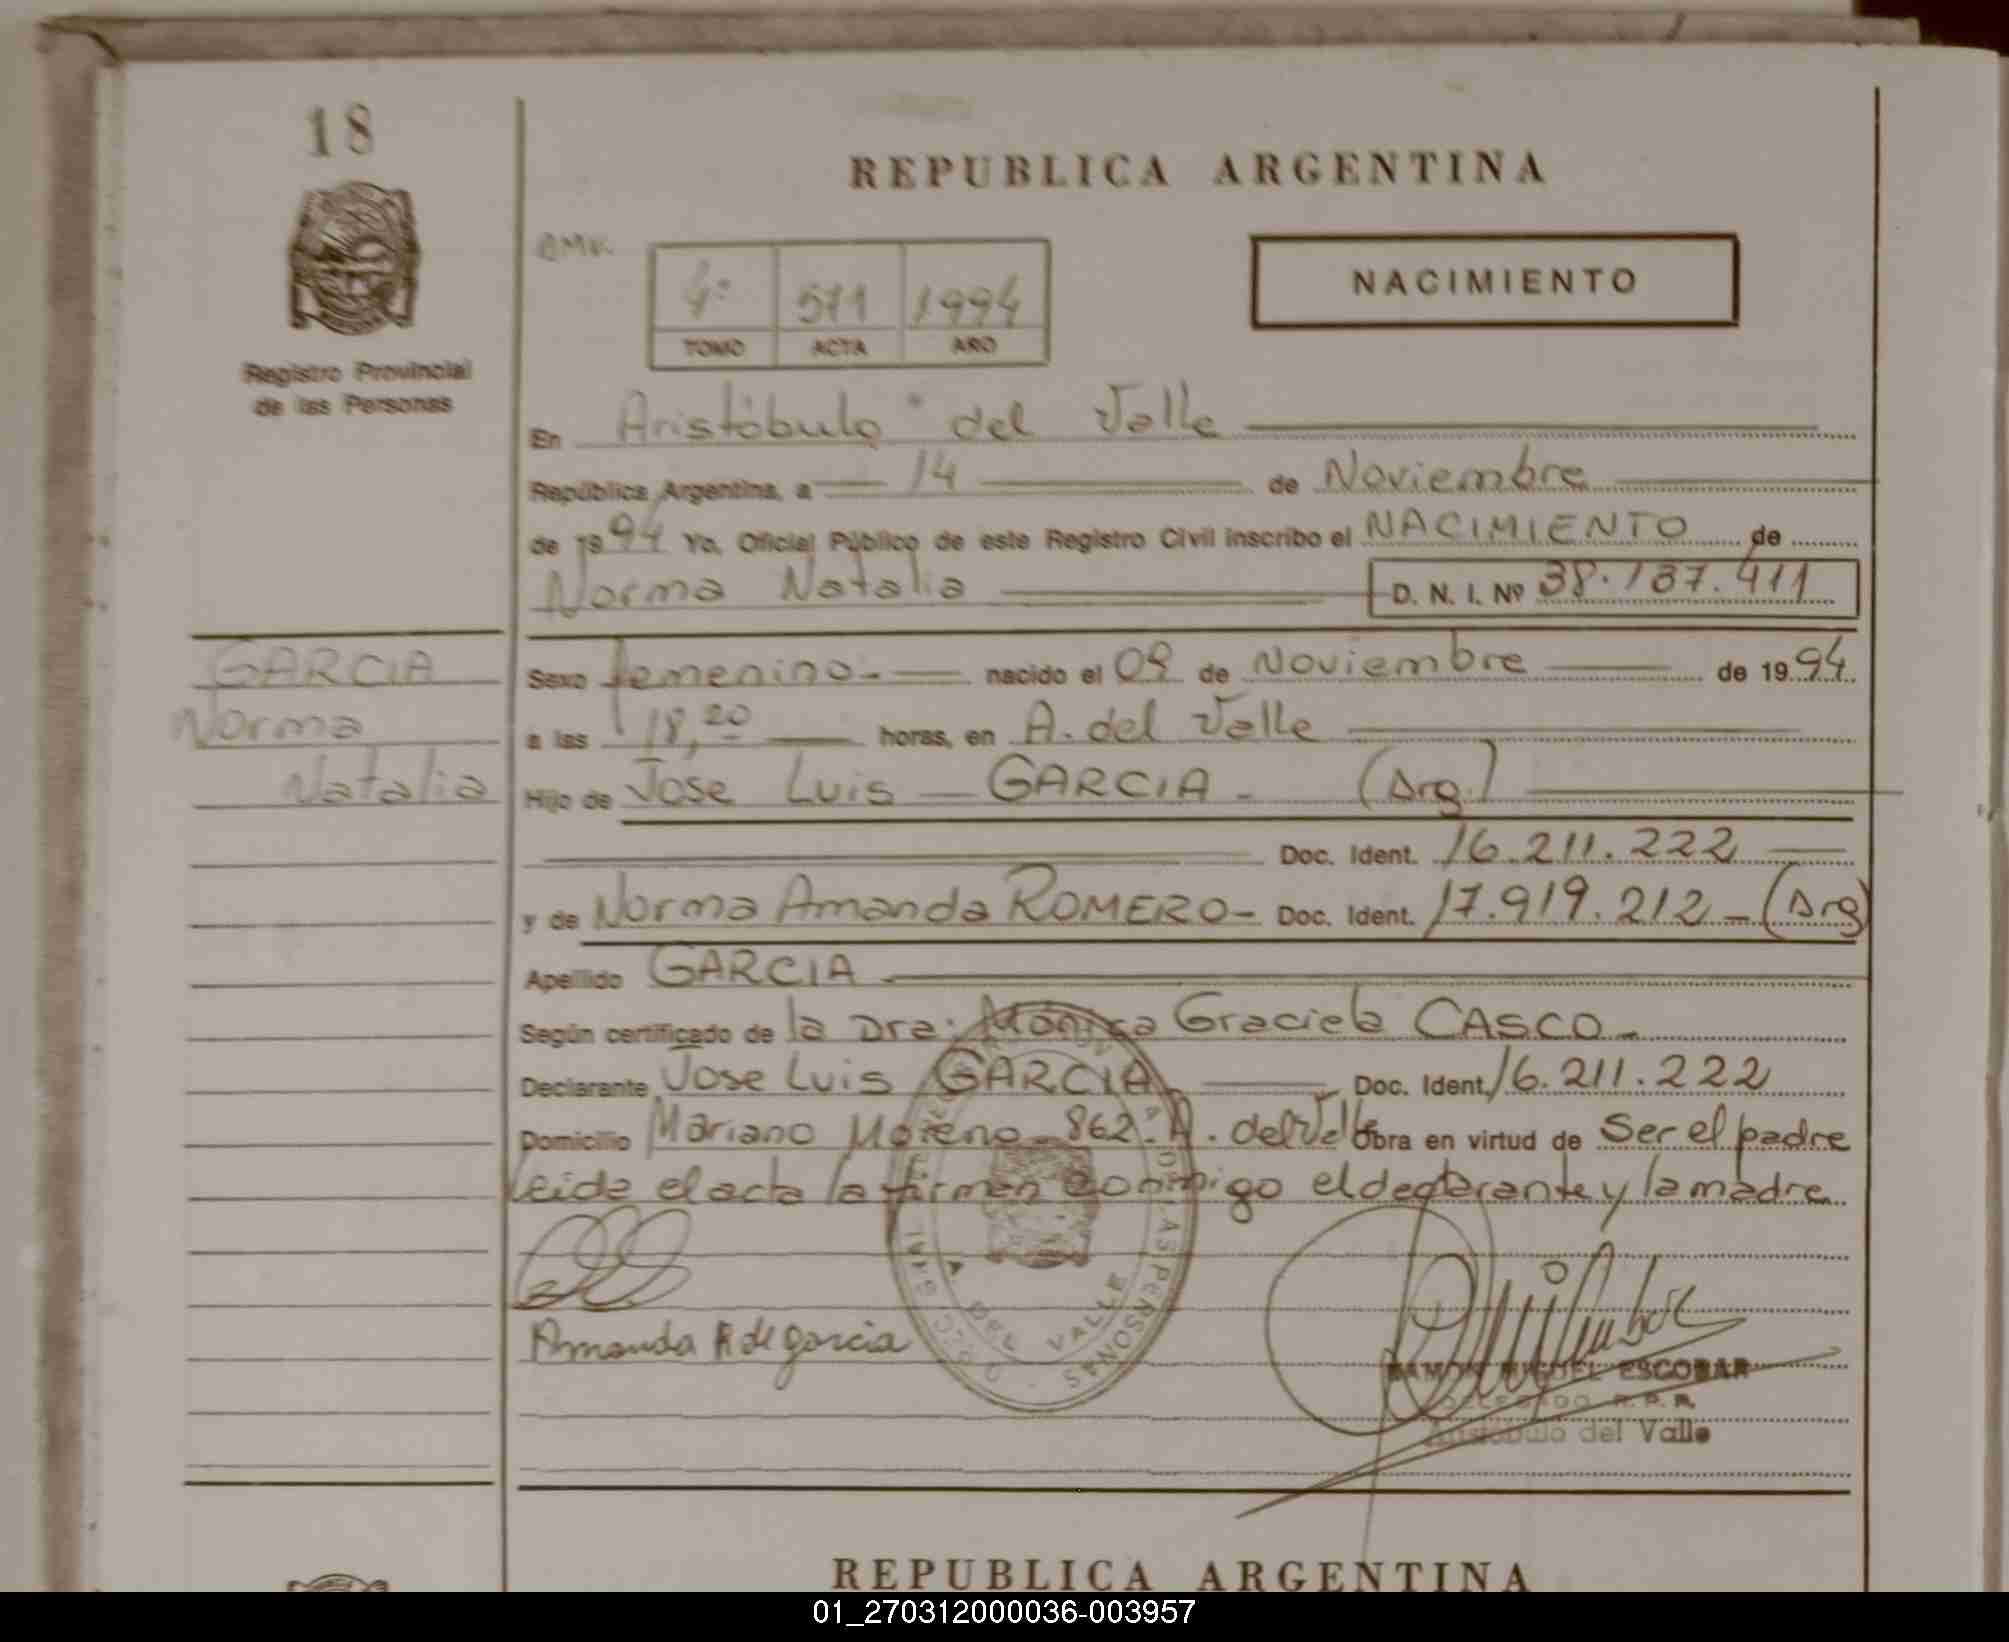 18
REPUBLICA ARGENTINA
4º 571 1994
TOMO ACTA AÑO
NACIMIENTO
Registro Provincial
de las Personas
En Aristóbulo del Valle
República Argentina, a 14 de Noviembre
de 1994 Yo, Oficial Público de este Registro Civil inscribo el NACIMIENTO de
Norma Natalia D. N. I. Nº 38.137.411
GARCIA
Norma
Natalia
Sexo femenino.- nacido el 09 de Noviembre de 1994
a las 18,20 horas, en A. del Valle
Hijo de Jose Luis - GARCIA - (Arg.)
Doc. Ident. 16.211.222
y de Norma Amanda ROMERO- Doc. Ident. 17.919.212 - (Arg)
Apellido GARCIA
Según certificado de la Dra. Mónica Graciela CASCO -
Declarante Jose Luis GARCIA Doc. Ident. 16.211.222
Domicilio Mariano Moreno - 862 - A. del Valle Obra en virtud de Ser el padre
Leida el acta la firman conmigo el declarante y la madre
Amanda R de garcia
DEL VALLE
LAS PERSONAS
RAMON MIGUEL ESCOBAR
DELEGADO R.P.P.
Aristóbulo del Valle
REPUBLICA ARGENTINA
01_270312000036-003957